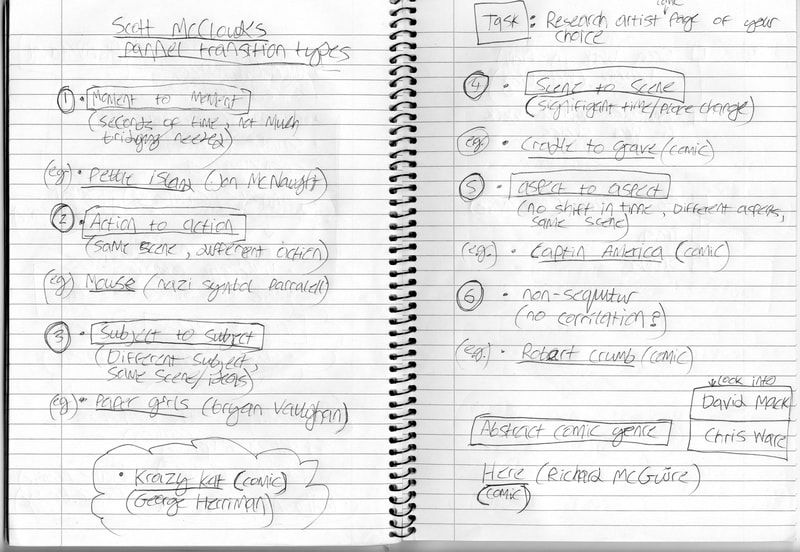 Scott McCloud's
pannel transition types
① • Moment to Moment
(seconds of time, not much
bridging needed)
(eg) • Pettie island (Jon McNaught)
② • Action to action
(same scene, different action)
(eg) Mouse (nazi symbol parralell)
③ • Subject to subject
(Different subject,
same scene/ideas)
(eg) • Paper girls (bryan Vaughan)
• Krazy kat (comic)
(George Herriman)
Task: Research artist page of your
choice
④ • Scene to scene
(signifigant time/place change)
(eg) • Cradle to grave (comic)
⑤ • aspect to aspect
(no shift in time, Different aspects,
same scene)
(eg.) • Captin America (comic)
⑥ • non-sequitur
(no corrilation?)
(eg.) • Robart Crumb (comic)
look into
David Mack
Chris Ware
Abstract comic genre
Here (Richard McGuire)
(comic)